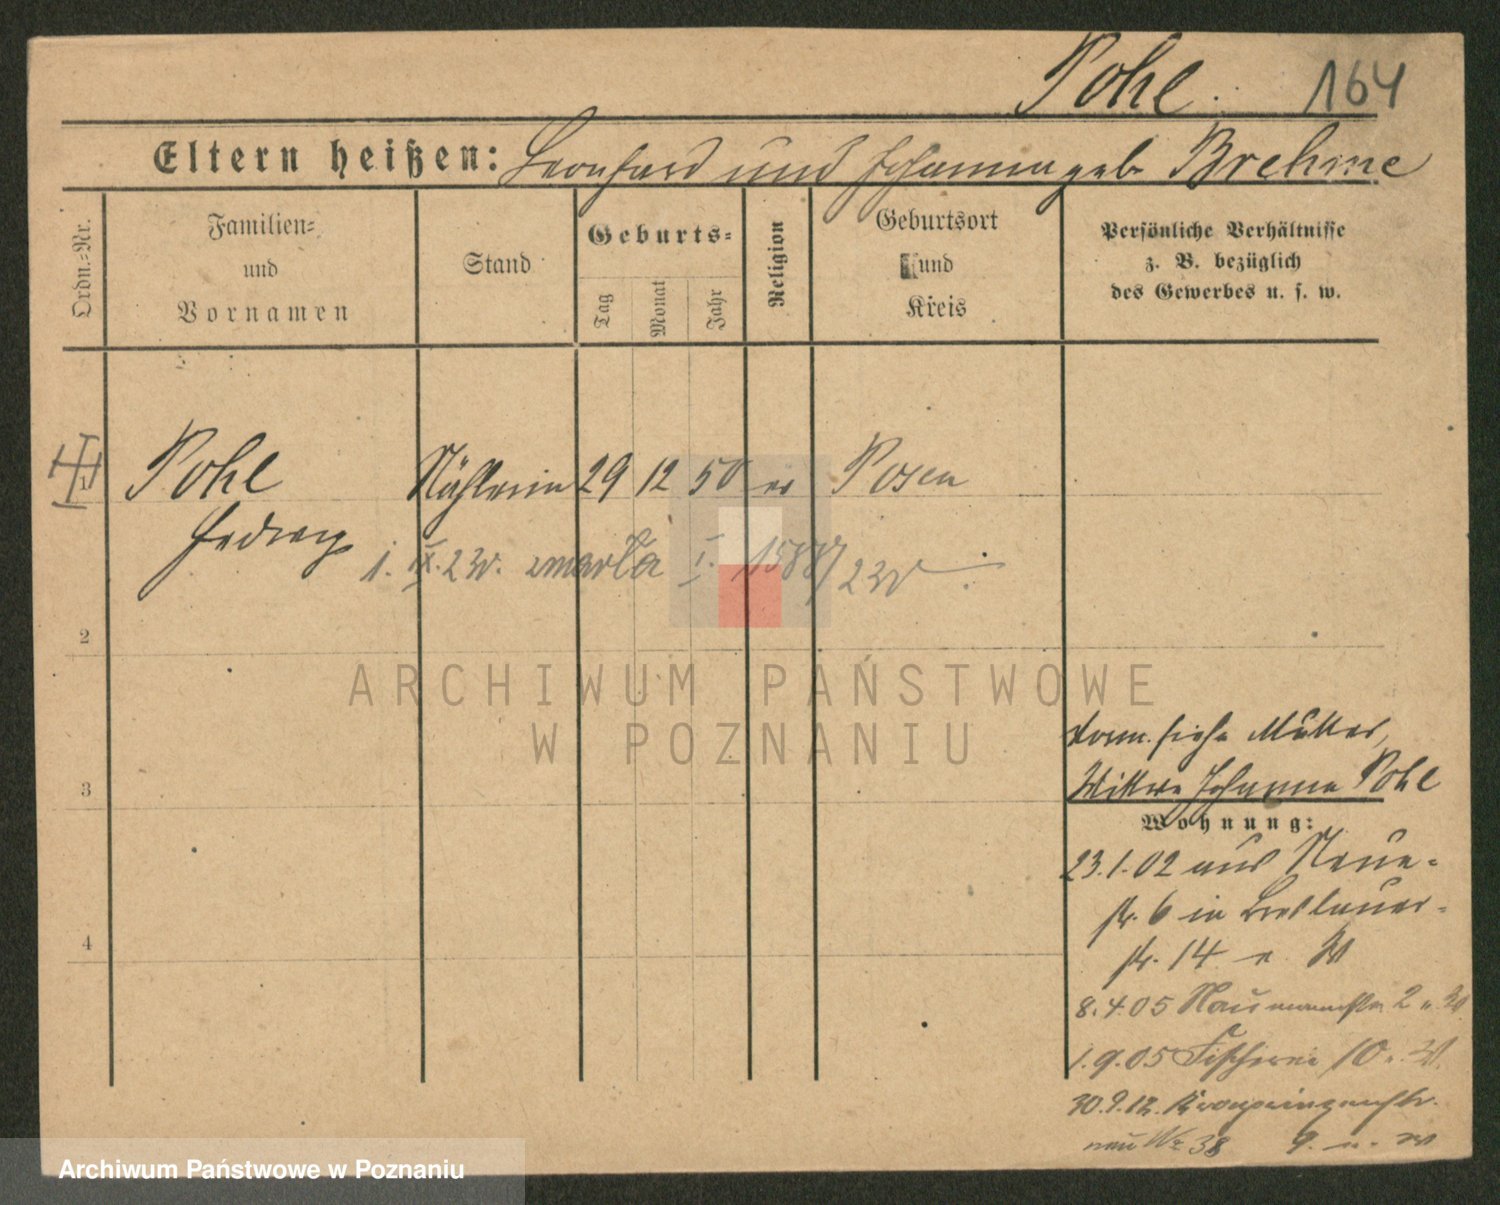 Pohl. 164
Eltern heißen: Leonhard und Johanna geb. Brehme
Ordn.=Nr.
Familien=
und
Vornamen
Stand
Geburts=
Tag
Monat
Jahr
Religion
Geburtsort
und
Kreis
Persönliche Verhältnisse
z. B. bezüglich
des Gewerbes u. s. w.
1 Pohl Nähterin 29 12 50 ev Posen
Hedwig
1. IX. 23. zmarła I. 1588/23
2
ARCHIWUM PAŃSTWOWE
W POZNANIU
3
4
siehe Mutter,
Wittwe Johanna Pohl
Wohnung:
23.1.02 aus Neue-
str. 6 in Breslauer-
str. 14
8.4.05 Naumannstr. 2
1.9.05 Fischerei 10
30.9.12. Kronprinzenstr.
neu Nr 38
Archiwum Państwowe w Poznaniu